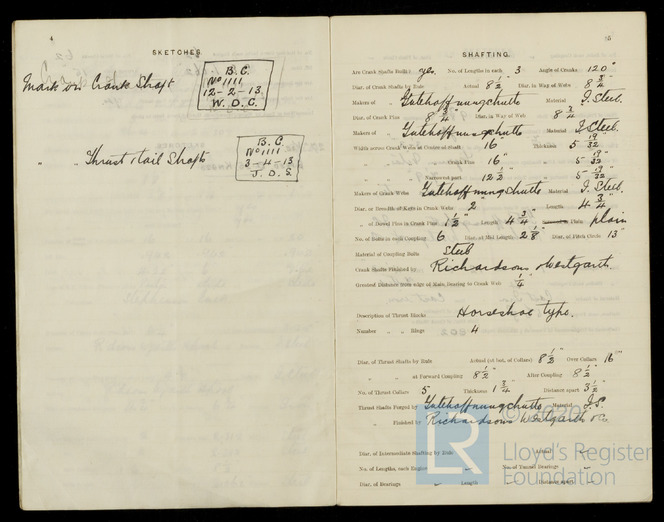 4
SKETCHES.
Mark on Crank Shaft
B. C.
No 1111
12-2-13.
W. D. C.
" " Thrust & tail Shafts
B. C.
No 1111
3-4-13
J. D. S.
SHAFTING.
Are Crank Shafts Built? yes. No. of Lengths in each 3 Angle of Cranks 120°
Diar. of Crank Shafts by Rule Actual 8 1/2" Diar. in Way of Webs 8 3/4"
Makers of " Gutehoffnungshutte Material I. Steel.
Diar. of Crank Pins 8 3/4" Diar. in Way of Web 8 3/4"
Makers of " Gutehoffnungshutte Material I. Steel.
Width across Crank Webs at Centre of Shaft 16" Thickness 5 19/32"
" " Crank Pins 16" " 5 19/32"
" " Narrowest part 12 1/2" " 5 19/32"
Makers of Crank Webs Gutehoffnungshutte Material I. Steel.
Diar. or Breadth of Keys in Crank Webs 2" Length 4 3/4"
" of Dowel Pins in Crank Pins 1 1/2" Length 4 3/4" Plain plain
No. of Bolts in each Coupling 6 Diar. at Mid Length 2 1/8" Diar. of Pitch Circle 13"
Material of Coupling Bolts Steel
Crank Shafts Finished by Richardsons Westgarth.
Greatest Distance from edge of Main Bearing to Crank Web 1/4"
Description of Thrust Blocks Horseshoe type.
Number " " Rings 4
Diar. of Thrust Shafts by Rule Actual (at bot. of Collars) 8 1/2" Over Collars 16"
" " at Forward Coupling 8 1/2" After Coupling 8 1/2"
No. of Thrust Collars 5 Thickness 1 3/4" Distance apart 3 1/2"
Thrust Shafts Forged by Gutehoffnungshutte Material I.S.
" " Finished by Richardsons Westgarth & Co
Diar. of Intermediate Shafting by Rule Actual
No. of Lengths, each Engine No. of Tunnel Bearings
Diar. of Bearings Length Distance apart
LR
© 2020
Lloyd's Register
Foundation